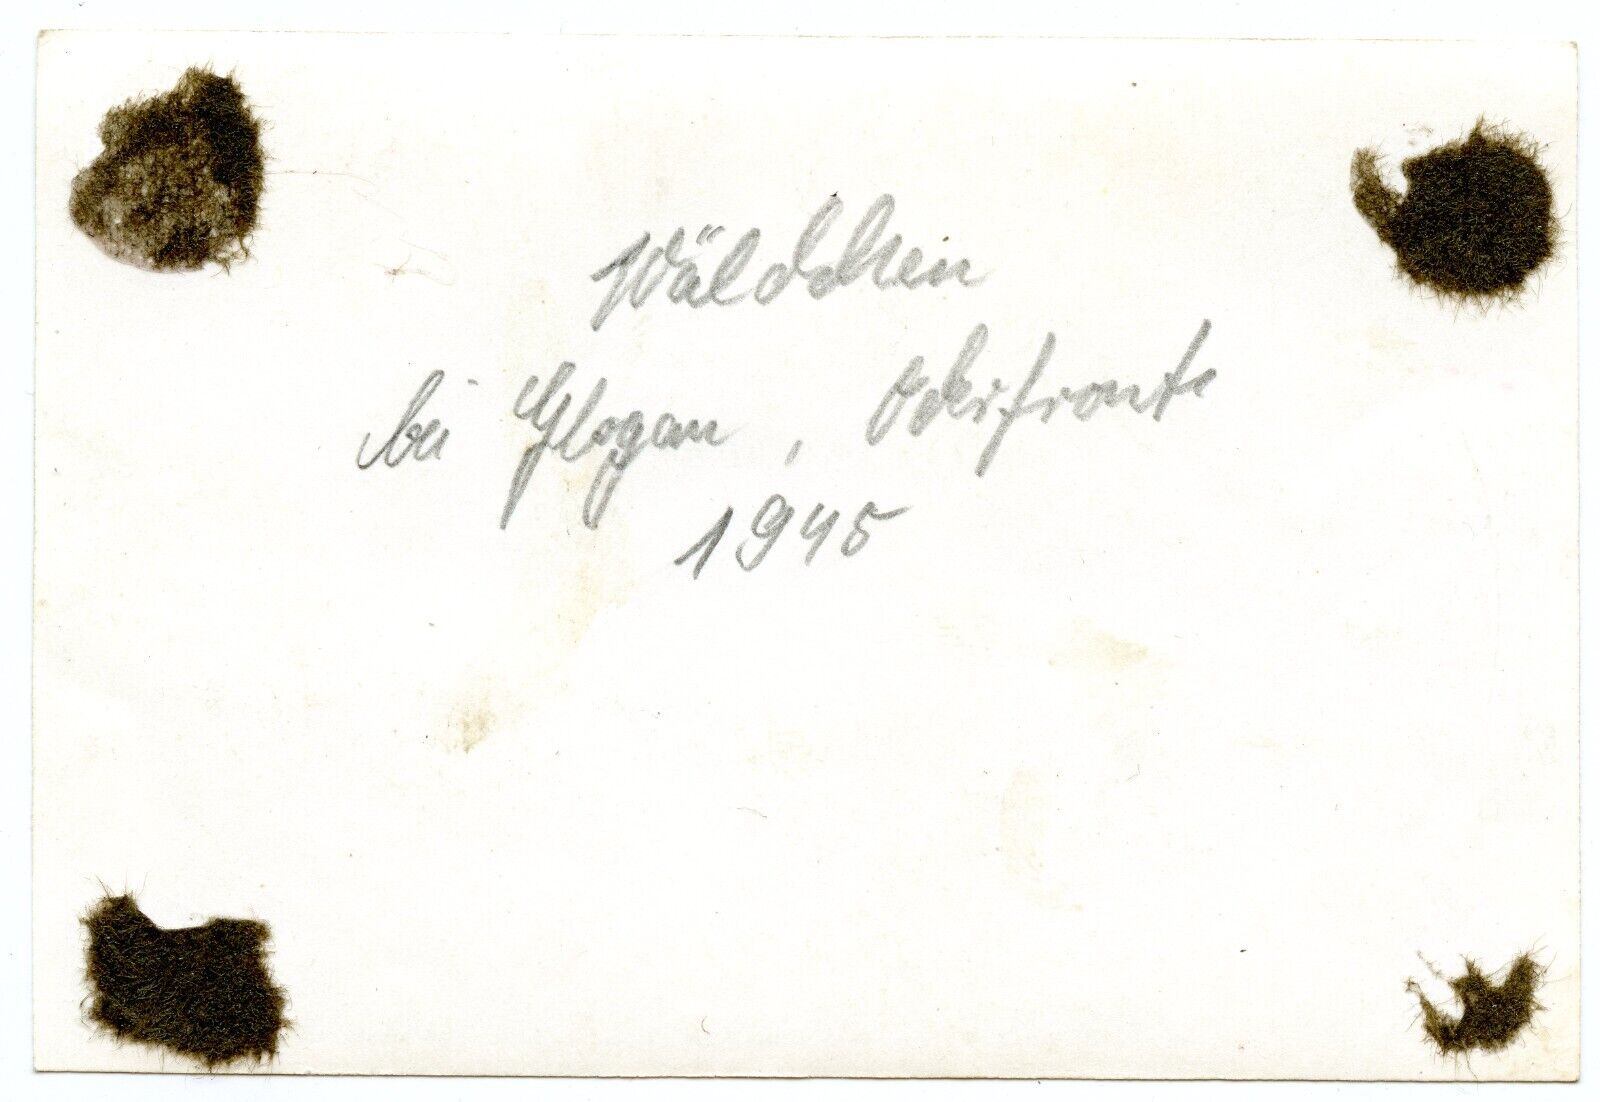 Wäldchen
bei Glogau, Oderfront
1945